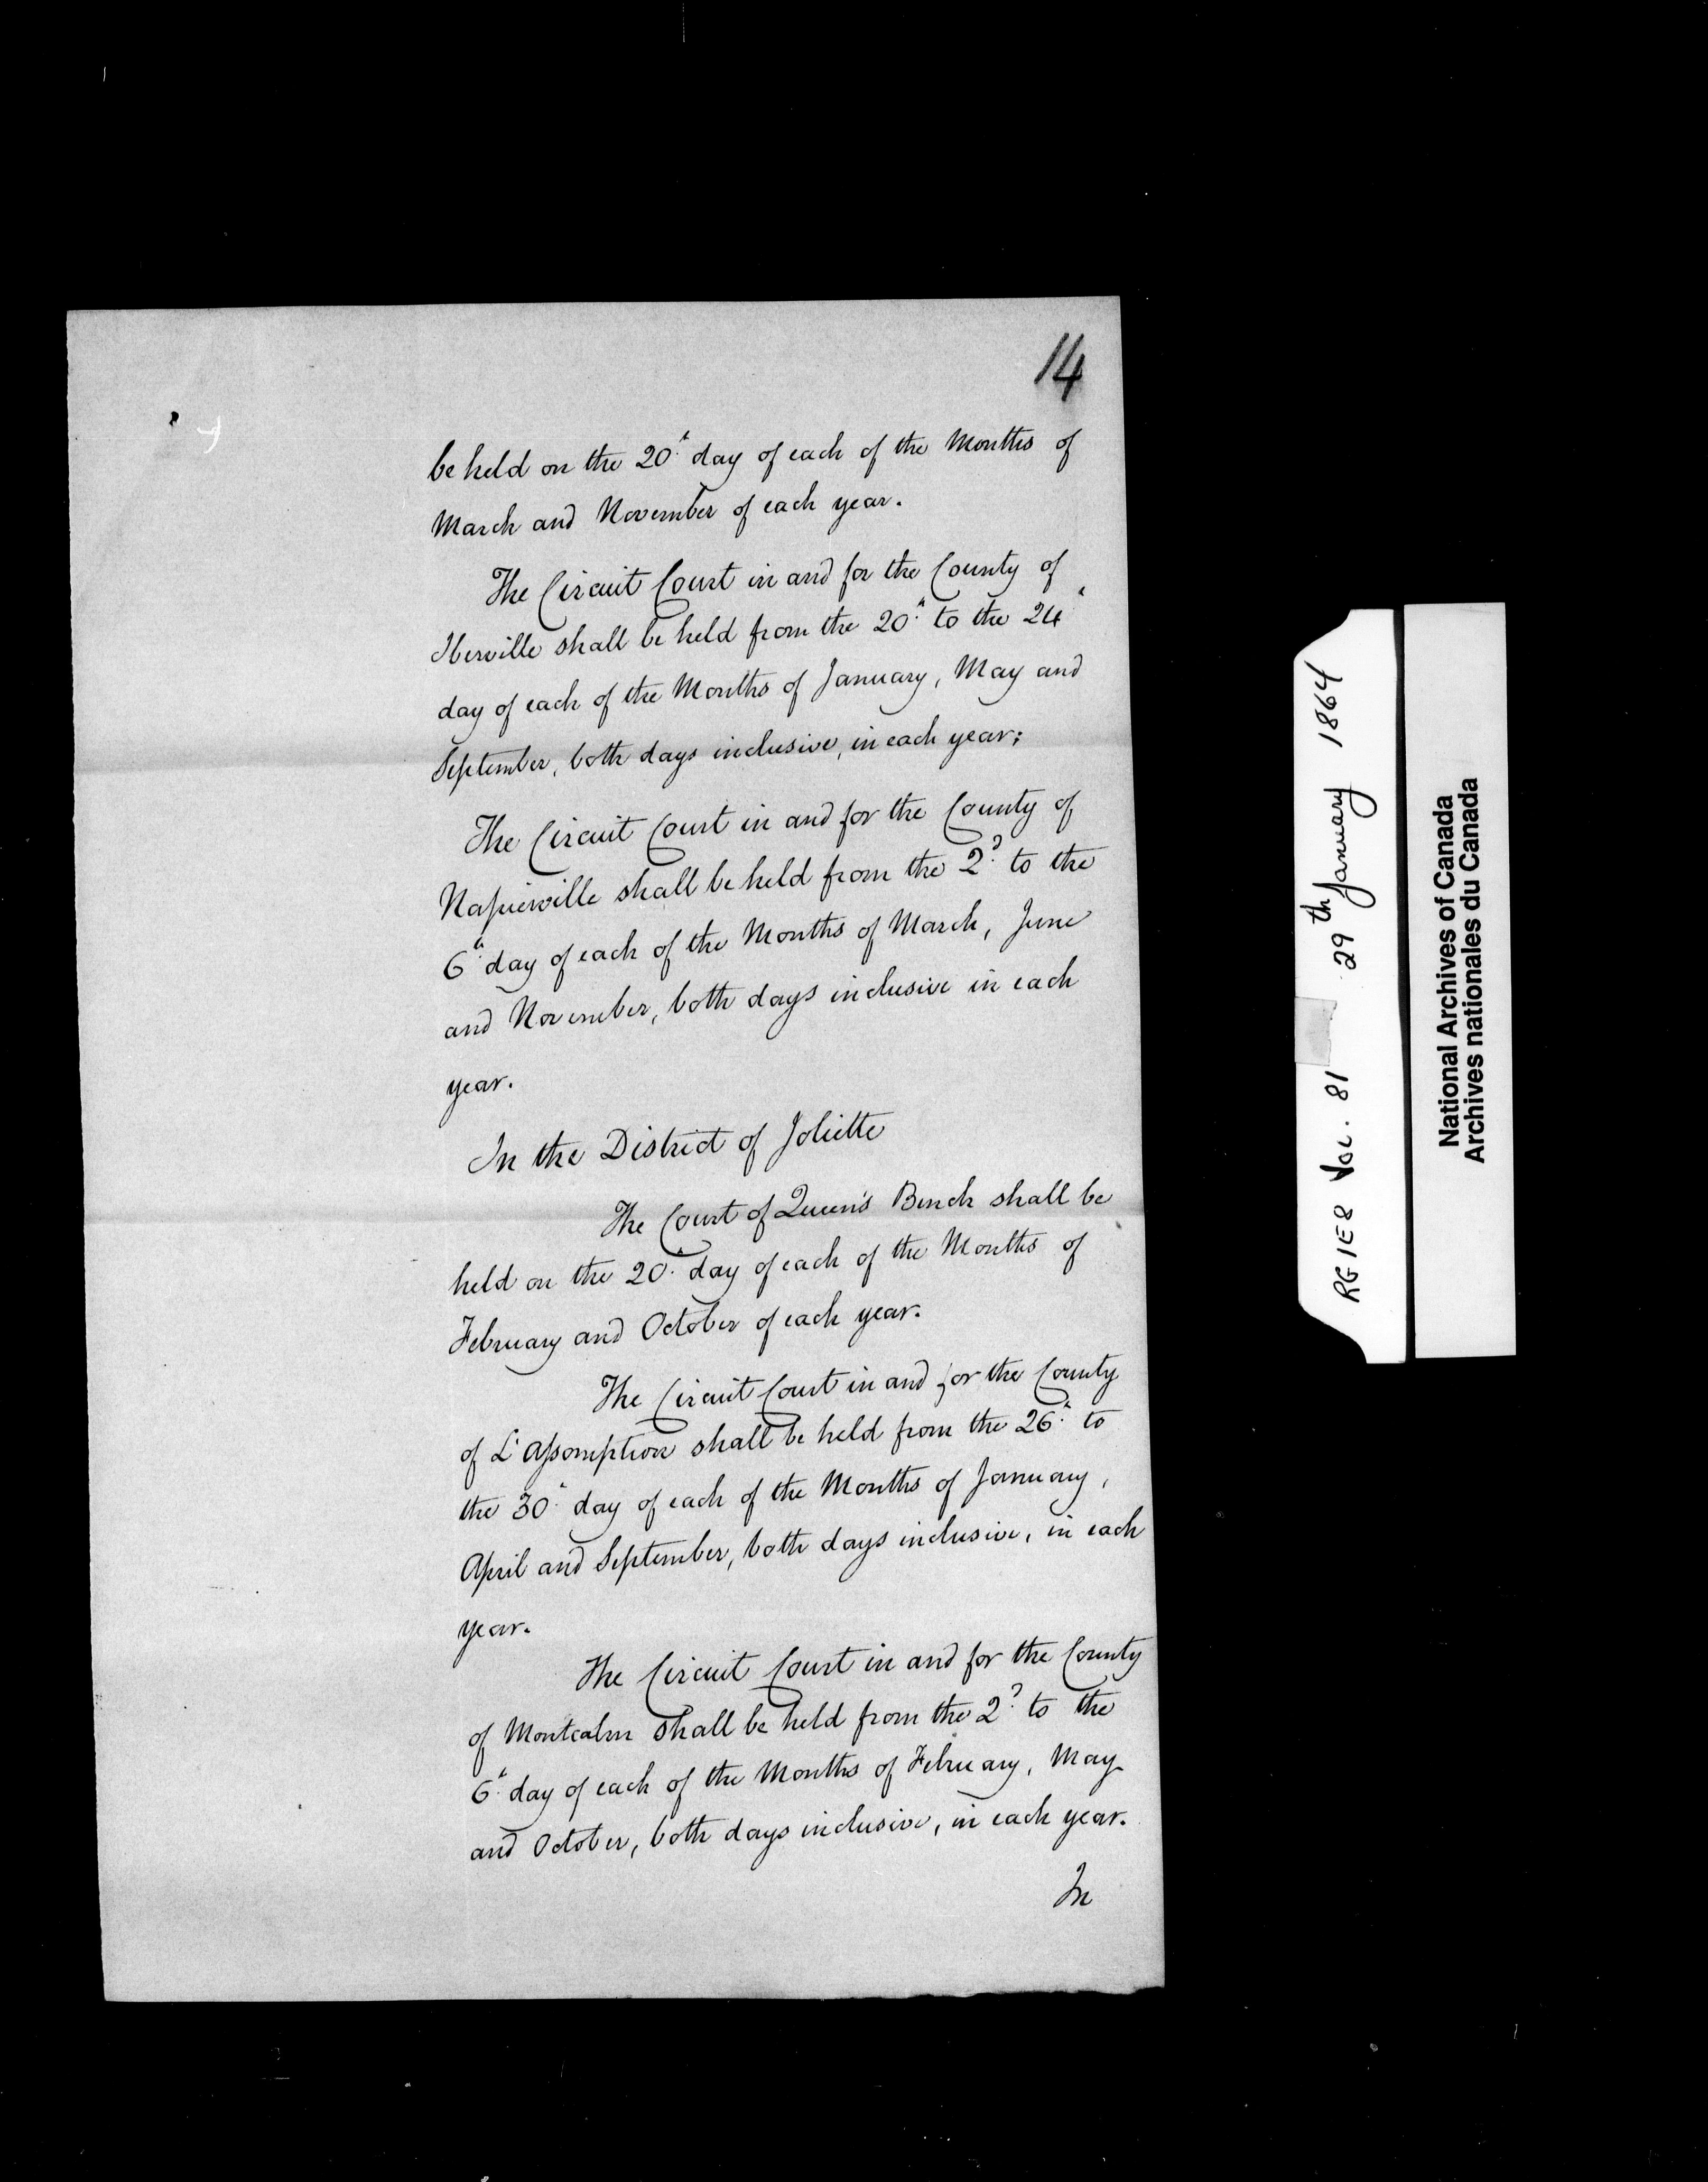 14
be held on the 20th day of each of the Months of
March and November of each year.
The Circuit Court in and for the County of
Iberville shall be held from the 20th to the 24th
day of each of the Months of January, May and
September, both days inclusive, in each year;
The Circuit Court in and for the County of
Napierville shall be held from the 2d to the
6th day of each of the Months of March, June
and November, both days inclusive in each
year.
In the District of Joliette
The Court of Queen's Bench shall be
held on the 20th day of each of the Months of
February and October of each year.
The Circuit Court in and for the County
of L'Assomption shall be held from the 26th to
the 30th day of each of the Months of January,
April and September, both days inclusive, in each
year.
The Circuit Court in and for the County
of Montcalm shall be held from the 2d to the
6th day of each of the Months of February, May
and October, both days inclusive, in each year.
In
RG 1E8 Vol. 81 29th January 1864
National Archives of Canada
Archives nationales du Canada